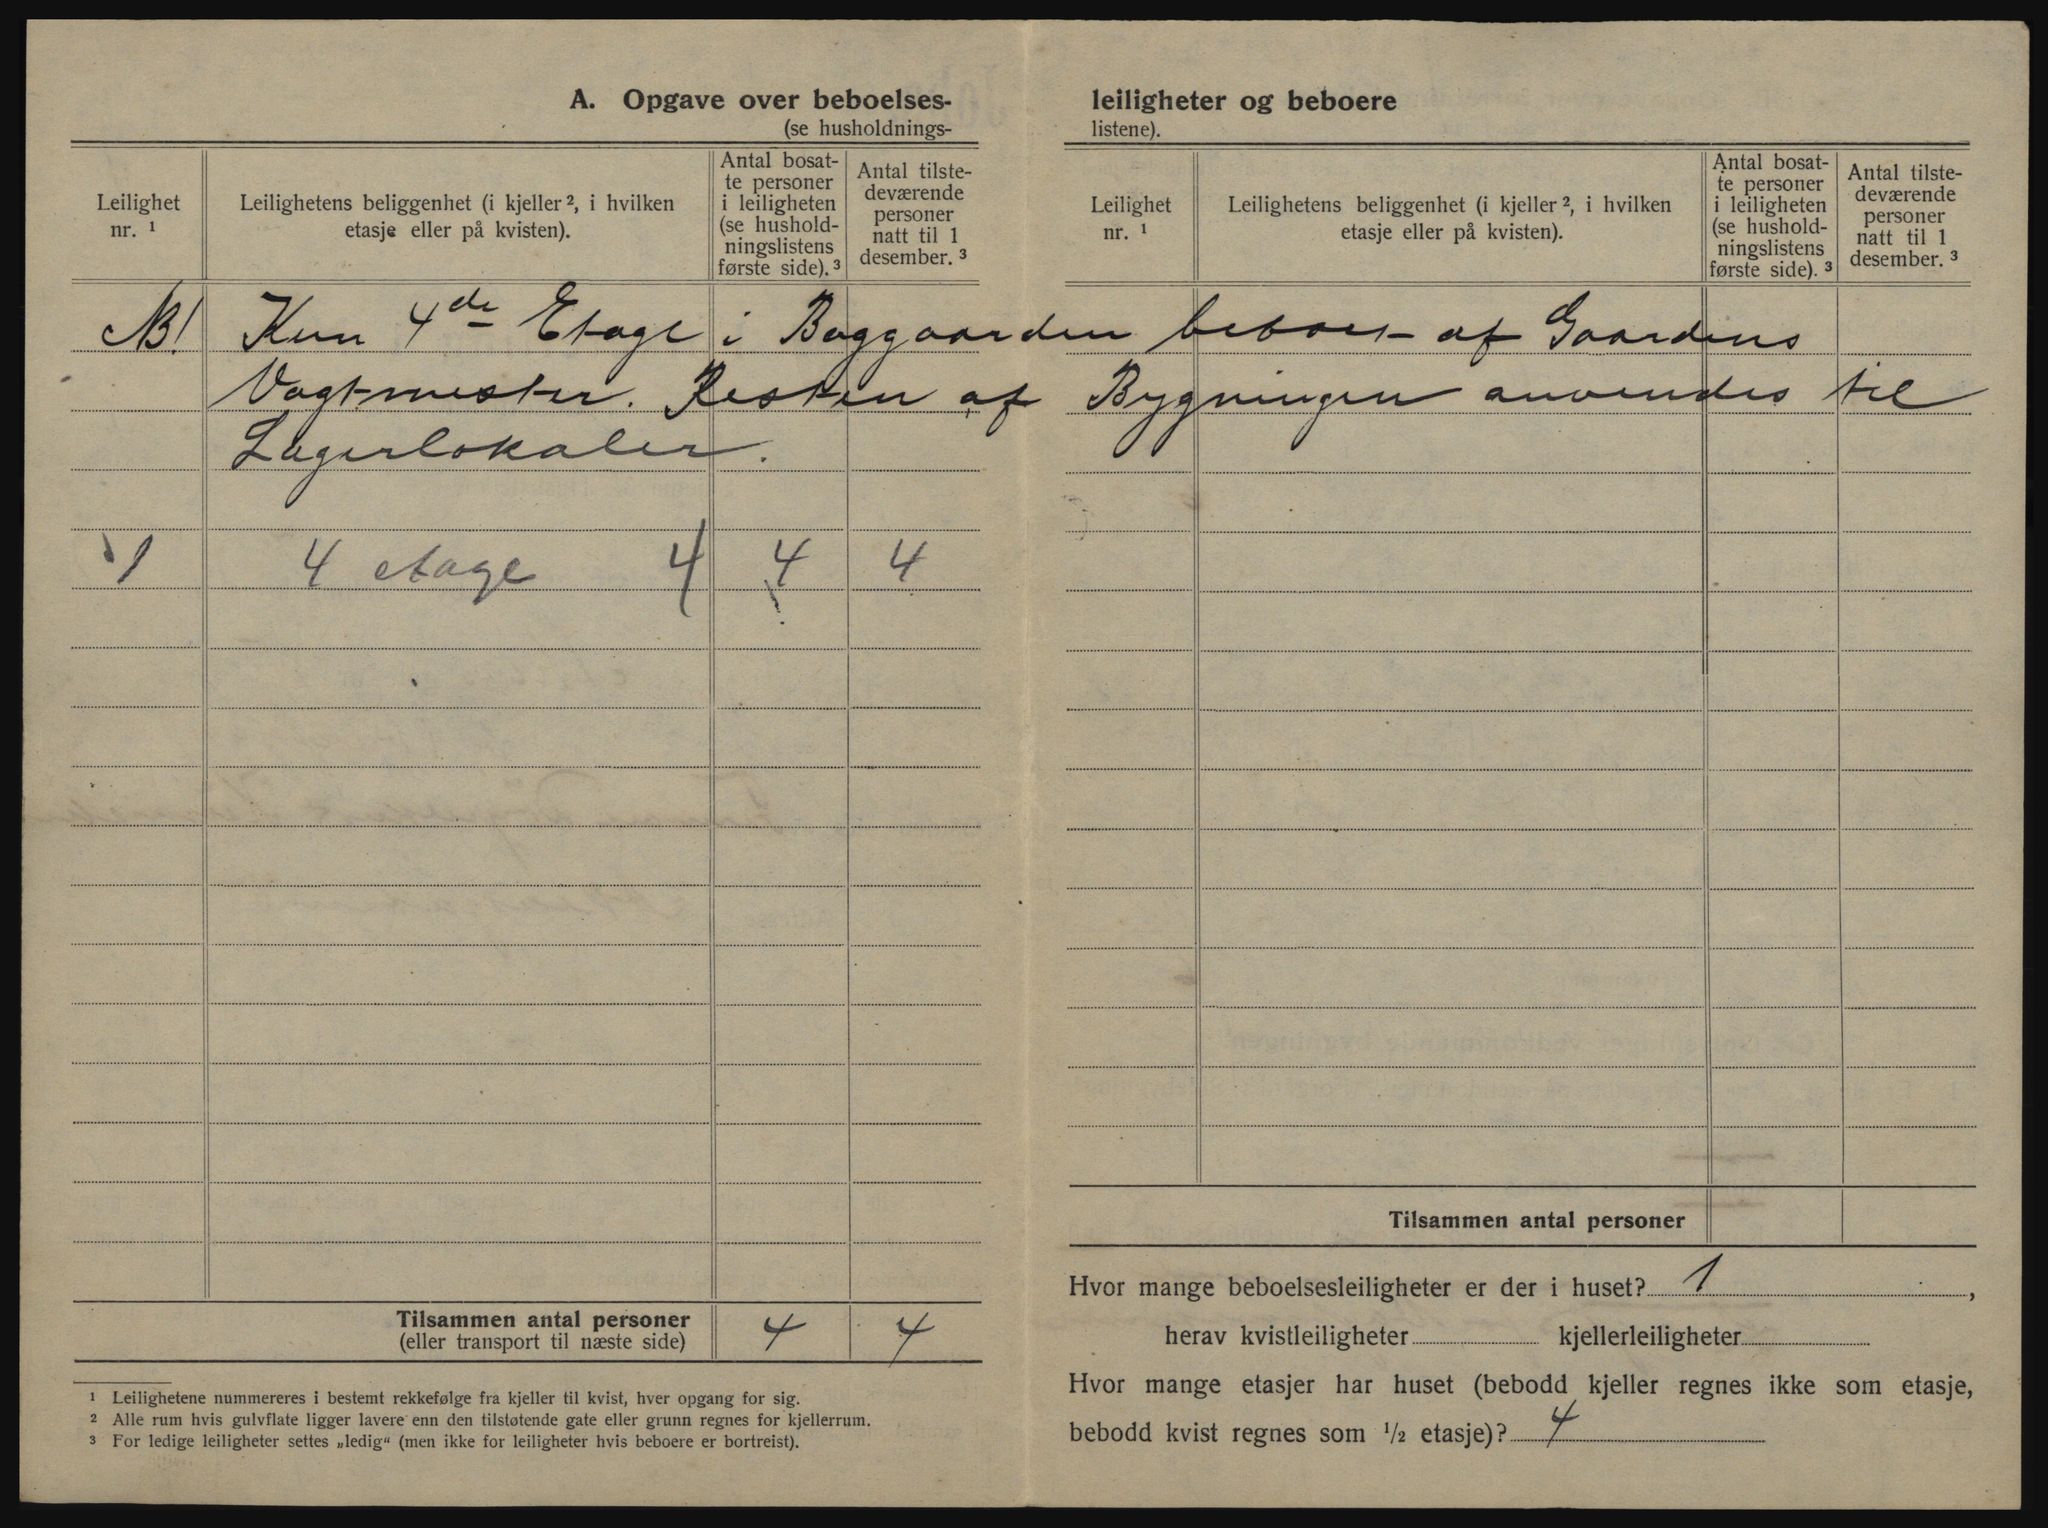 A. Opgave over beboelses- leiligheter og beboere
(se husholdnings- listene).
Leilighet nr. ¹
Leilighetens beliggenhet (i kjeller ², i hvilken etasje eller på kvisten).
Antal bosat-
te personer
i leiligheten
(se hushold-
ningslistens
første side). ³
Antal tilste-
deværende
personer
natt til 1
desember. ³
Leilighet nr. ¹
Leilighetens beliggenhet (i kjeller ², i hvilken etasje eller på kvisten).
Antal bosat-
te personer
i leiligheten
(se hushold-
ningslistens
første side). ³
Antal tilste-
deværende
personer
natt til 1
desember. ³
NB! Kun 4de Etage i Baggaarden beboes af Gaardens
Vagtmester. Resten af Bygningen anvendes til
Lagerlokaler.
1 4 etage 4 4 4
Tilsammen antal personer
(eller transport til næste side) 4 4
¹ Leilighetene nummereres i bestemt rekkefølge fra kjeller til kvist, hver opgang for sig.
² Alle rum hvis gulvflate ligger lavere enn den tilstøtende gate eller grunn regnes for kjellerrum.
³ For ledige leiligheter settes „ledig" (men ikke for leiligheter hvis beboere er bortreist).
Tilsammen antal personer
Hvor mange beboelsesleiligheter er der i huset? 1 ,
herav kvistleiligheter kjellerleiligheter
Hvor mange etasjer har huset (bebodd kjeller regnes ikke som etasje,
bebodd kvist regnes som ½ etasje)? 4